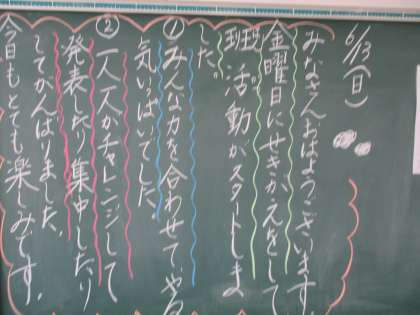 6/13(日)
みなさんおはようございます。
金曜日にせきがえをして
班活動がスタートしま
した。
①みんな力を合わせて、やる
気いっぱいでした。
②一人一人がチャレンジして
発表したり集中したり
してがんばりました。
今日もとても楽しみです。